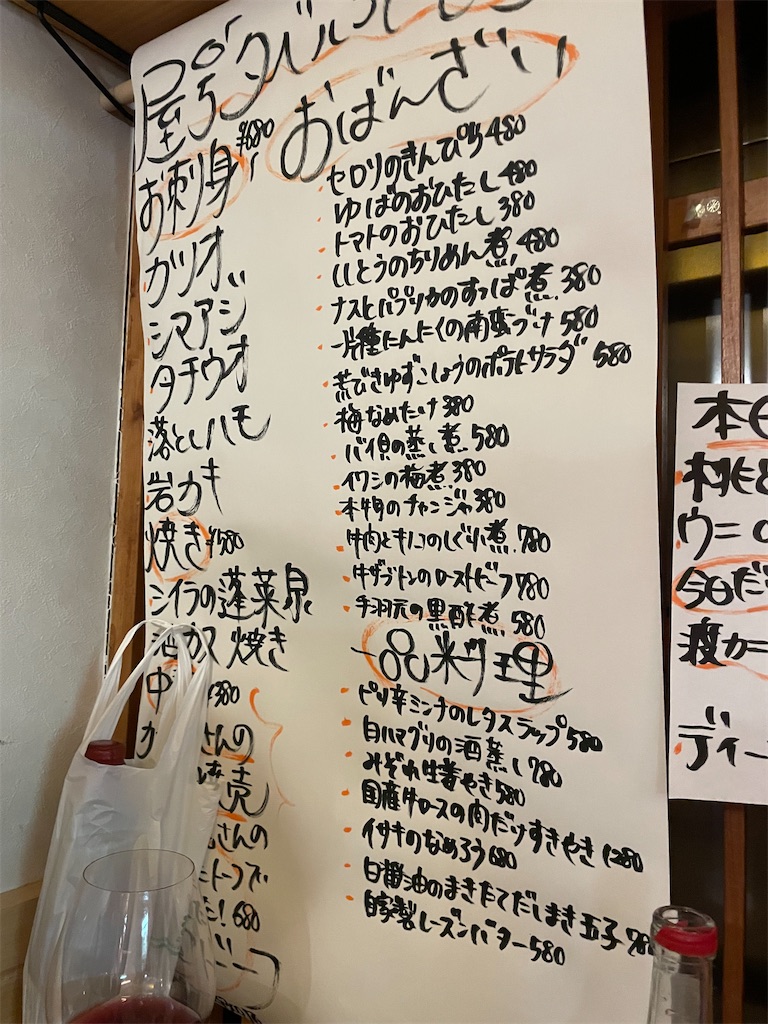 おばんざい
お刺身 ¥680
ガツオ
シマアジ
タチウオ
落としハモ
岩ガキ
焼き ¥580
シイラの蓬莱泉
酒カス焼き
中
¥380
さんの
売
さんの
トーフ
680
セロリのきんぴら 480
ゆばのおひたし 480
トマトのおひたし 380
ししとうのちりめん煮 480
ナスとパプリカのすっぱ煮 380
一片種にんにくの南蛮づけ 580
荒びきゆずこしょうのポテトサラダ 580
梅なめたけ 380
バイ貝の蒸し煮 580
イワシの梅煮 380
本物のチャンジャ 380
牛肉ときのこのしぐれ煮 780
牛ザブトンのローストビーフ 780
手羽元の黒酢煮 580
一品料理
ピリ辛ミンチのレタスラップ 580
白ハマグリの酒蒸し 780
みぞれ生姜やき 580
国産牛ロースの肉だけすきやき 1280
イサキのなめろう 680
白醤油のまきたてだしまき玉子 780
自家製レーズンバター 580
本日
ウニ
今日だ
渡カニ
ディー